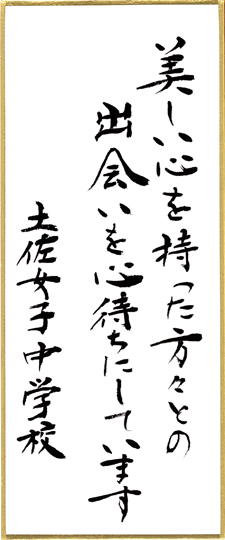 美しい心を持った方々との
出会いを心待ちにしています
土佐女子中学校